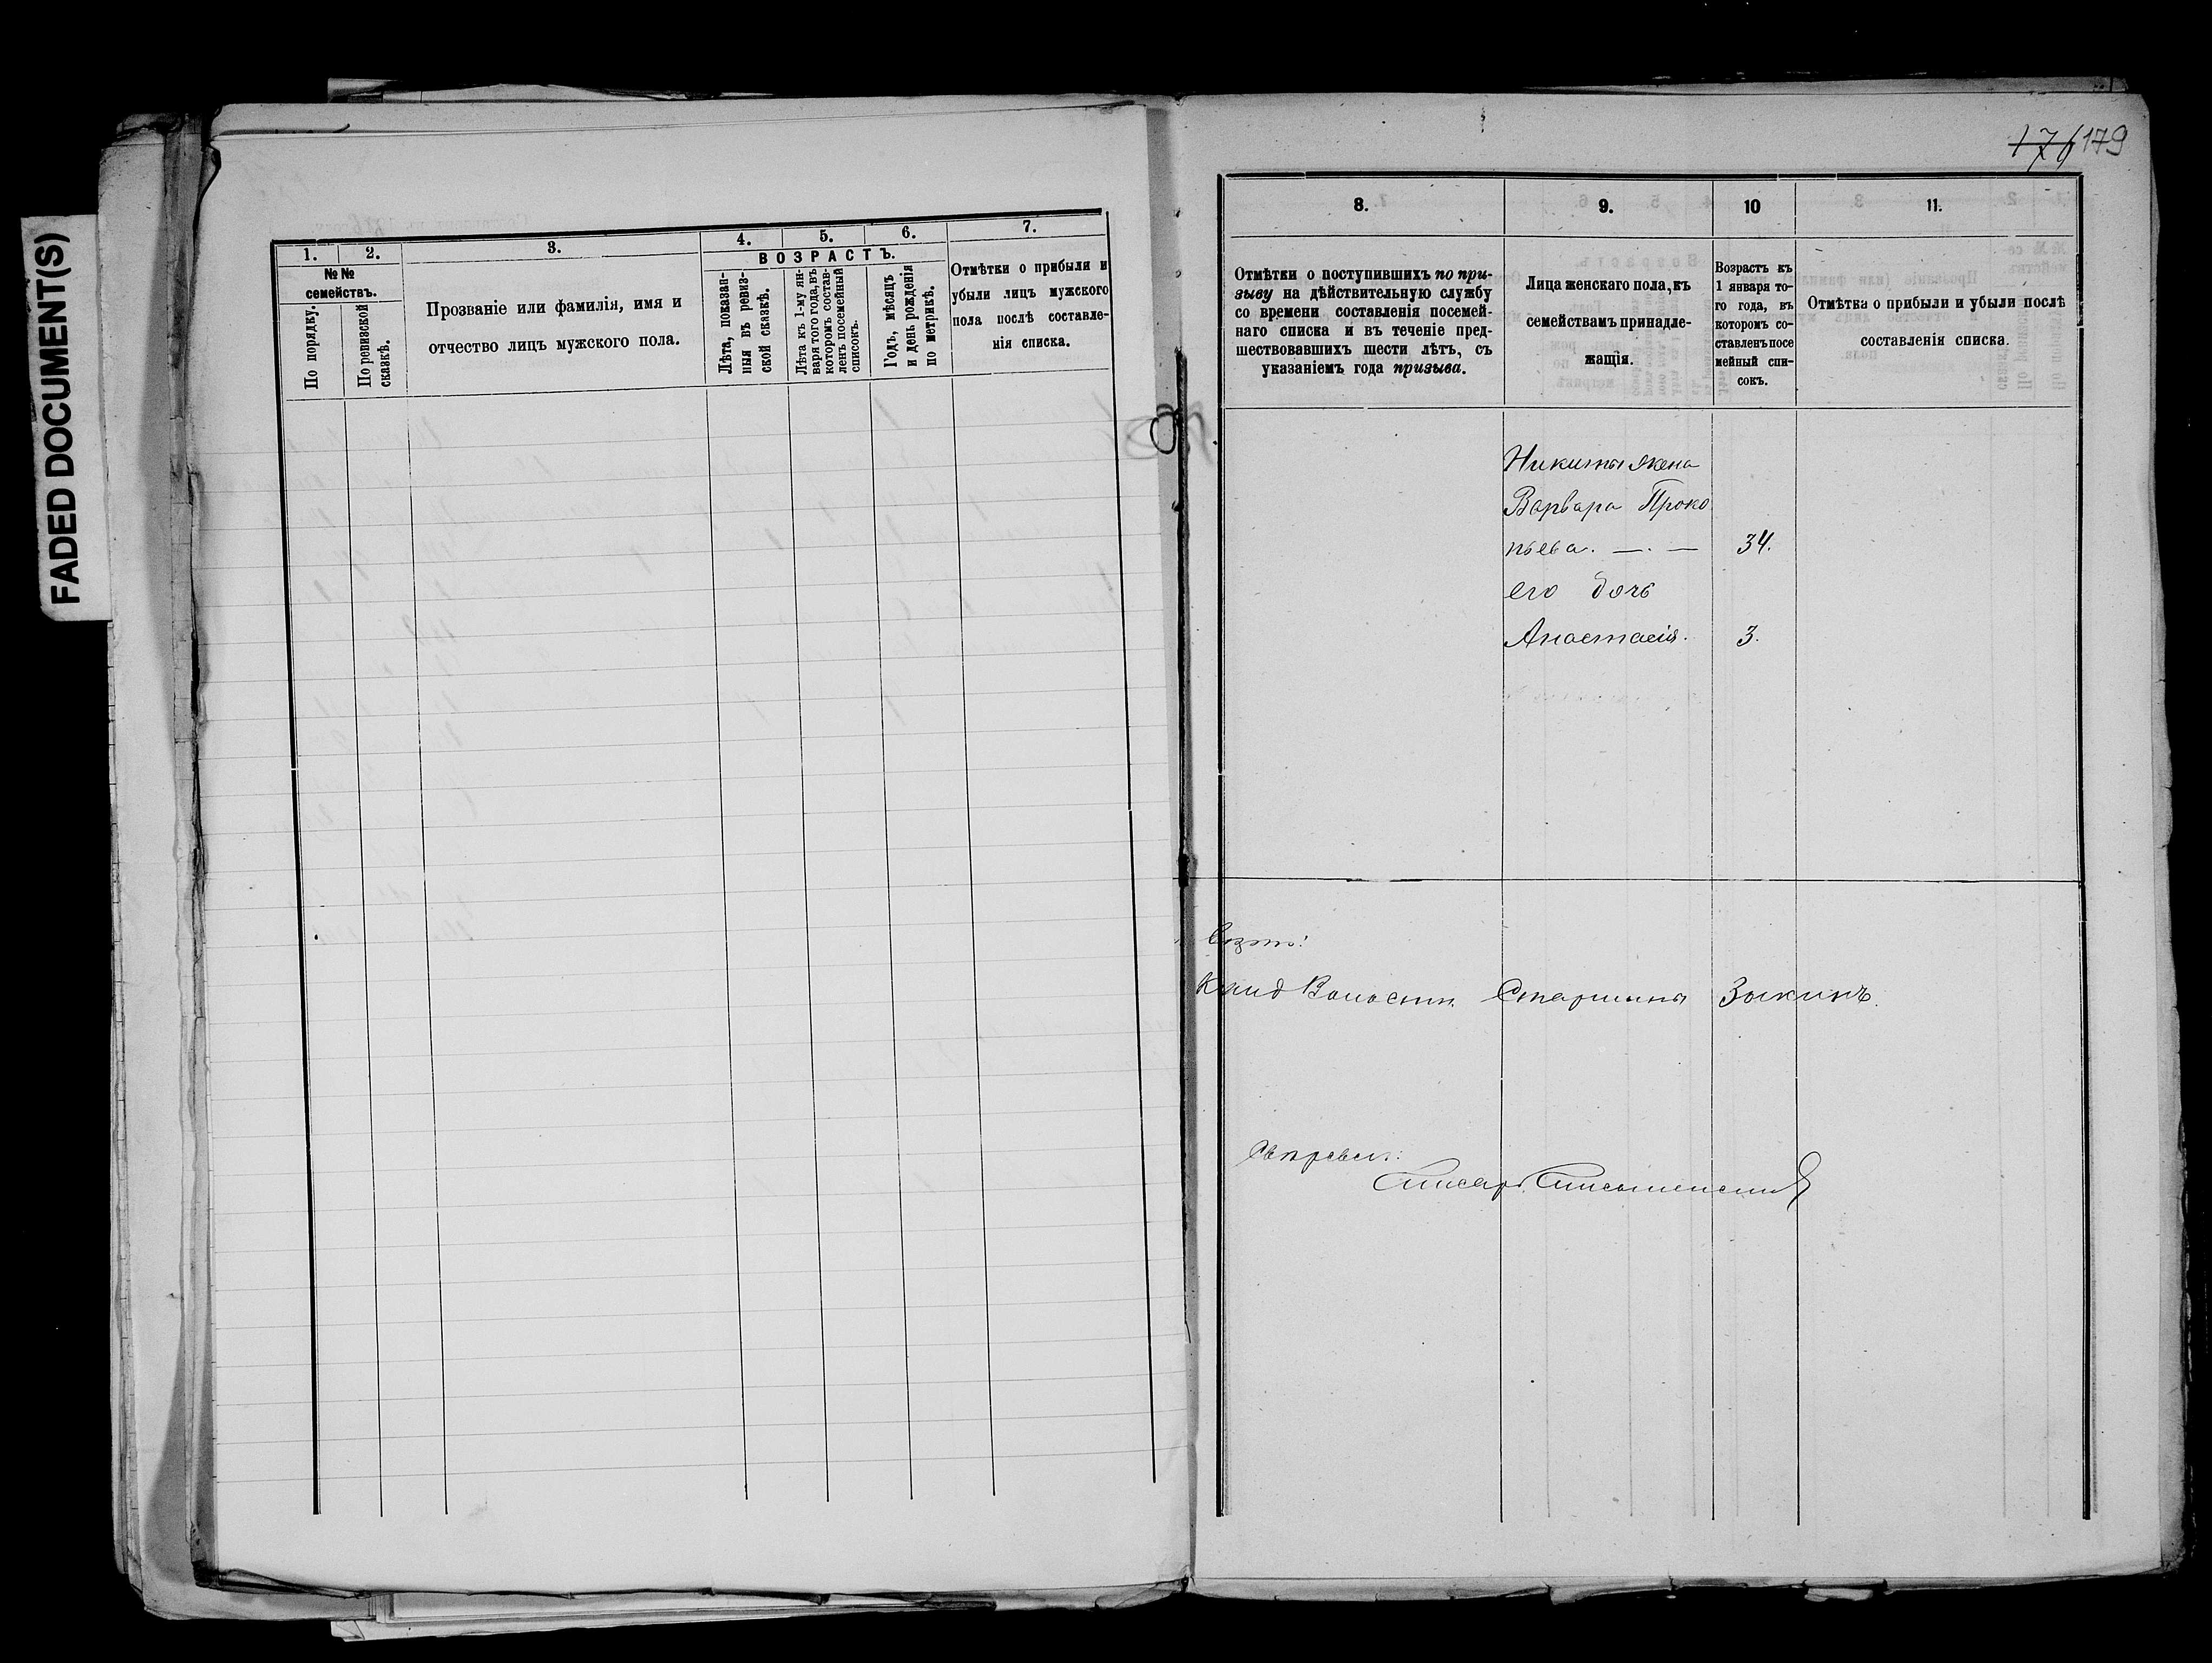 FADED DOCUMENT(S)
1.
2.
3.
4.
5.
6.
7.
№ №
семействъ.
По порядку.
По ревизской
сказкѣ.
Прозваніе или фамилія, имя и
отчество лицъ мужского пола.
ВОЗРАСТЪ.
Лѣта, показан-
ныя въ ревиз-
ской сказкѣ.
Лѣта къ 1-му ян-
варя того года, въ
которомъ состав-
ленъ посемейный
списокъ.
Годъ, мѣсяцъ
и день рожденія
по метрикѣ.
Отмѣтки о прибыли и
убыли лицъ мужского
пола послѣ составле-
нія списка.
176 179
8.
9.
10
11.
Отмѣтки о поступившихъ по при-
зыву на дѣйствительную службу
со времени составленія посемей-
наго списка и въ теченіе пред-
шествовавшихъ шести лѣтъ, съ
указаніемъ года призыва.
Лица женскаго пола, къ
семействамъ принадле-
жащія.
Возрастъ къ
1 января то-
го года, въ
которомъ со-
ставленъ посе
мейный спи-
сокъ.
Отмѣтка о прибыли и убыли послѣ
составленія списка.
Никиты жена
Варвара Проко
пьева. — . — 34.
его дочь
Анастасія. 3.
Канд Волостн. Старшины Зыкинъ.
Писарь